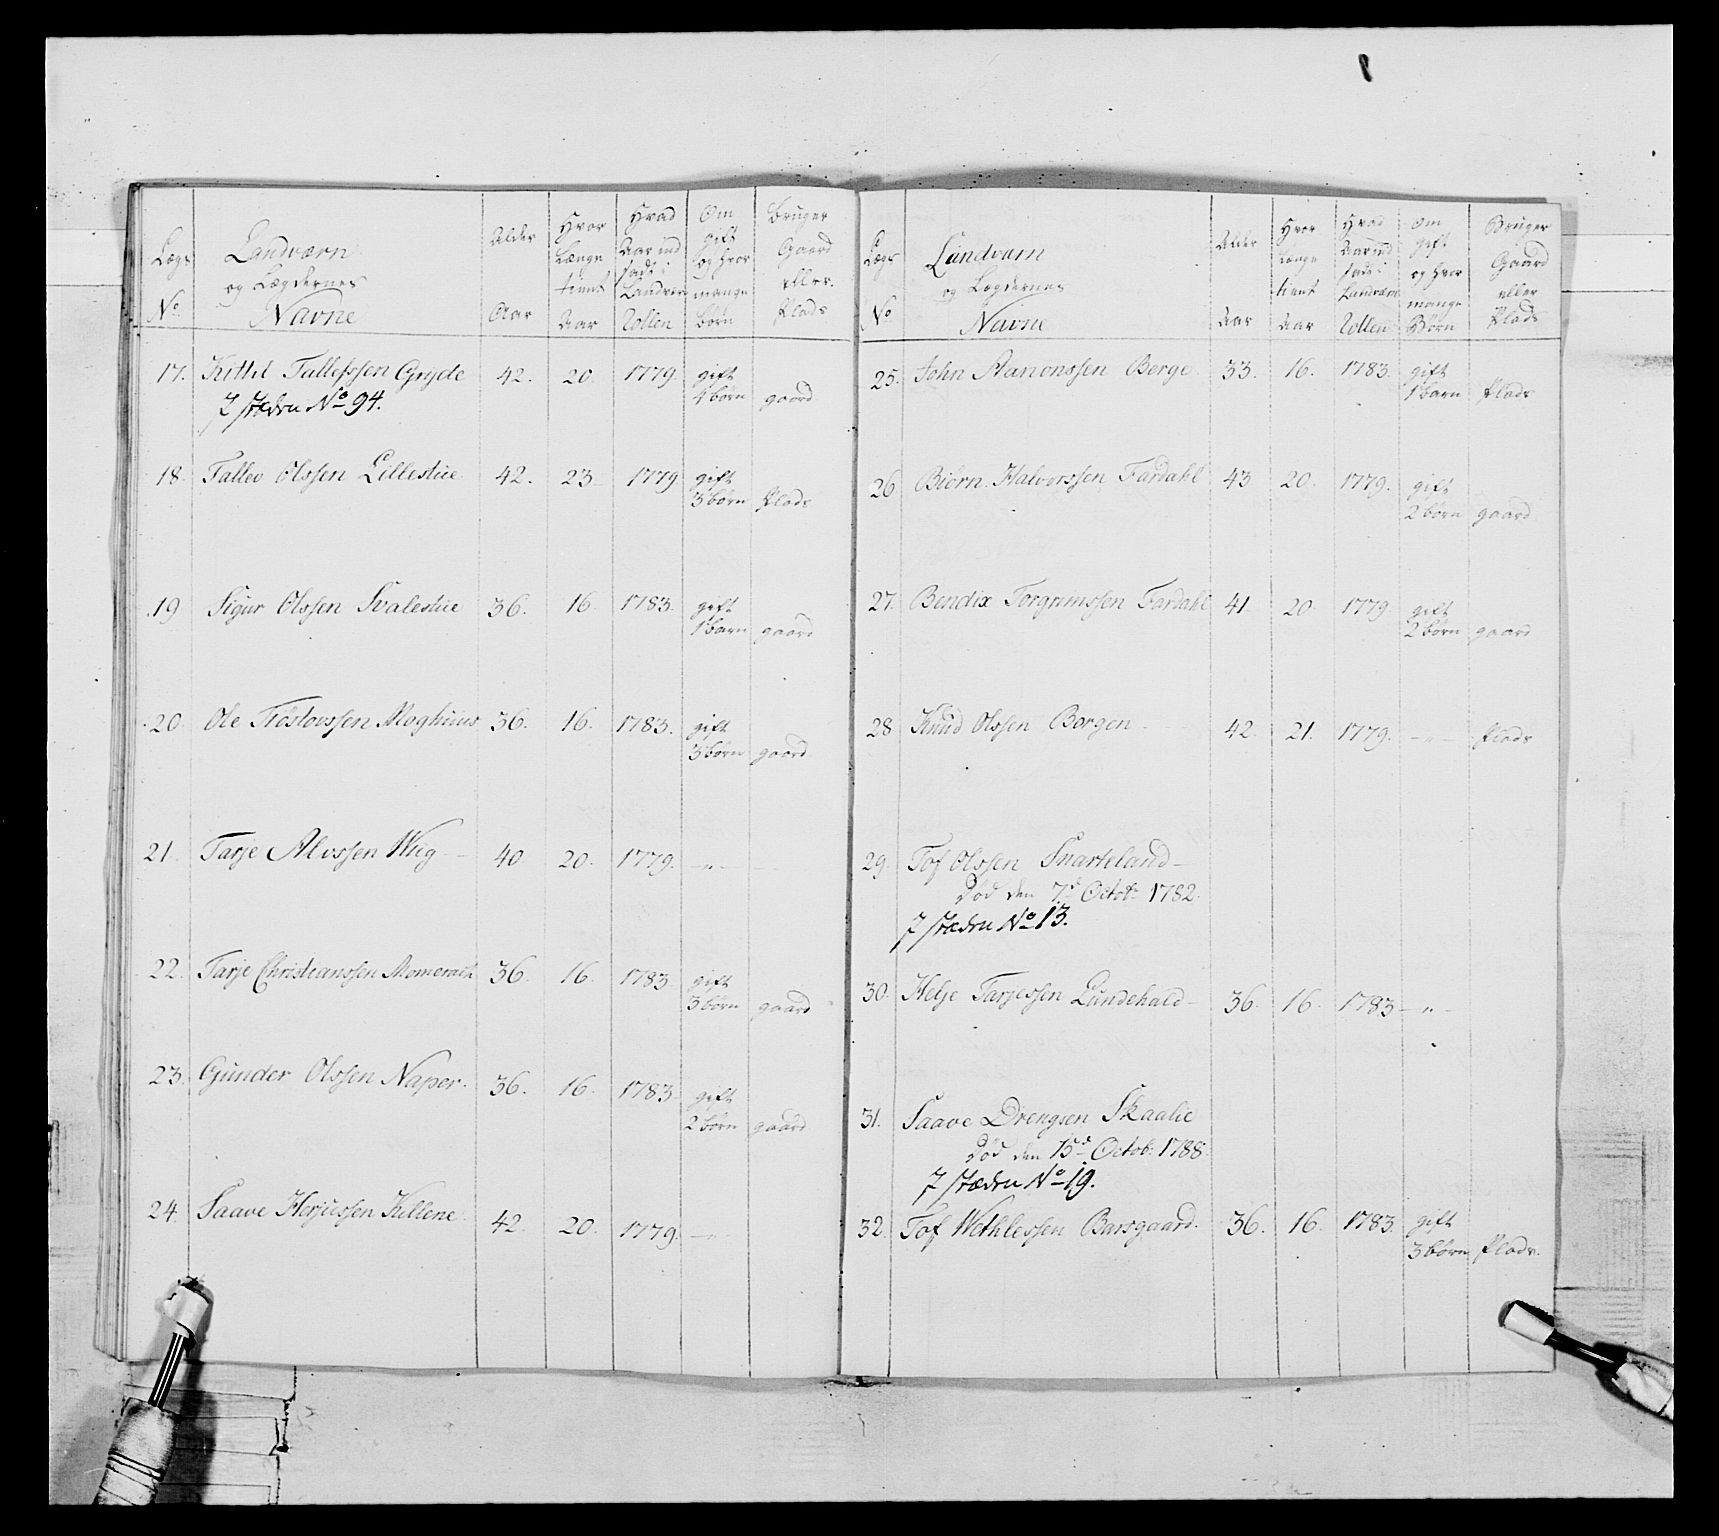 Lægs No | Landværn og Lægdernes Navne | Alder Aar | Hvor Længe tient Aar | Hvad Aar ind sadt i Landværn Rollen | Om gift og hvor mange børn | Bruger Gaard eller Plads
17. Kittil Tallefssen Gryde 42. 20. 1779. gift
4 børn gaard
I stæden No 94.
18. Tallev Olssen Lillestue 42. 23 1779 gift
3 børn Plads
19 Sigur Olssen Svalestue 36. 16. 1783. gift
1 barn gaard
20. Ole Tieslovssen Moghuus 36. 16. 1783. gift
3 børn gaard
21. Tarje Alvssen Wiig 40. 20. 1779. — „ —
22. Tarje Christianssen Momerach 36 16. 1783 gift
3 børn gaard
23. Gunder Olssen Naper. 36. 16. 1783. gift
2 børn gaard
24. Saave Herjussen Killene 42. 20. 1779. — „ —
Lægs No | Landværn og Lægdernes Navne | Alder Aar | Hvor Længe tient Aar | Hvad Aar ind sadt i Landværn Rollen | Om gift og hvor mange Børn | Bruger Gaard eller Plads
25. John Aanonssen Berge 33. 16. 1783. gift
1 barn Plads
26 Biørn Halvorssen Fardahl 43 20. 1779. gift
2 børn gaard
27. Bendix Torgrimssen Fardahl 41. 20. 1779. gift
2 børn gaard
28 Knud Olssen Borgen 42. 21. 1779. — „ — Plads
29. Tof Olssen Snarteland
Død den 7d Octob: 1782.
I stæden No 13.
30. Helje Tarjessen Lundehald 36. 16. 1783 — „ —
31. Saave Drengsen Skaalie
Død den 15d Octob: 1788.
I stæden No 19.
32. Tof Wethlessen Barsgaard. 36. 16. 1783. gift
3 børn Plads.